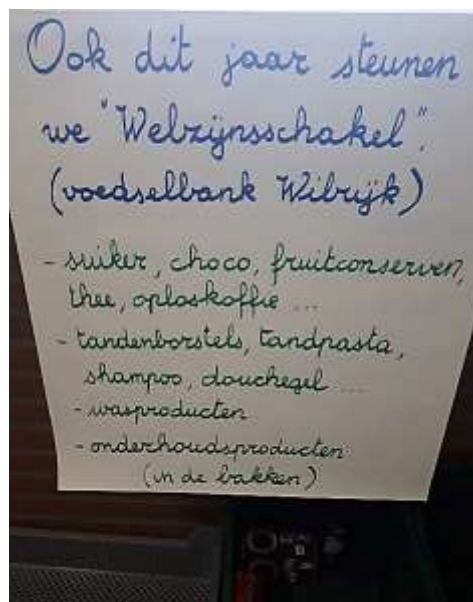 Ook dit jaar steunen
we "Welzijnsschakel".
(voedselbank Wilrijk)
- suiker, choco, fruitconserven,
thee, oploskoffie ...
- tandenborstels, tandpasta,
shampoo, douchegel ...
- wasproducten
- onderhoudsproducten
(in de bakken)